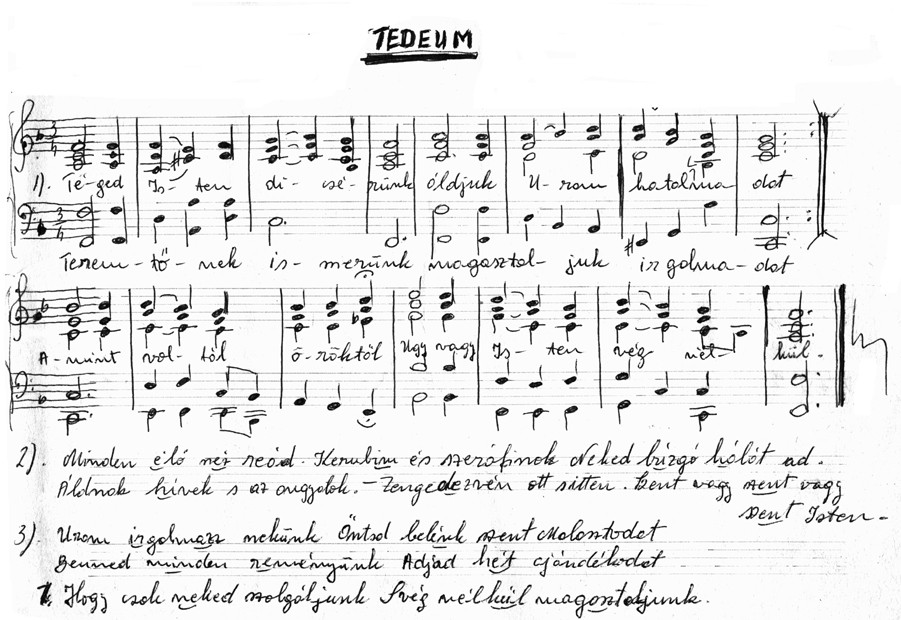 TEDEUM
1). Té-ged Is-ten di-csé-rünk áldjuk U-ram hatalma dat
Terem-tő-nek is-merünk magasztal-juk irgalma-dat
A-mint vol-tál ö-röktől Ugy vagy Is-ten vég nél-kül.
2). Minden élő néz reád. Kerubim és szeráfinok Neked buzgó hálát ad.
Áldnak hívek s az angyalok. - Zengedezvén ott sátten. Szent vagy szent vagy
szent Isten-
3) Uram irgalmazz nekünk Öntsd belénk szent Malasztodat
Benned minden reményünk Adjad hét ajándékodat
Hogy csak neked szolgáljunk S vég nélkül magasztaljunk.